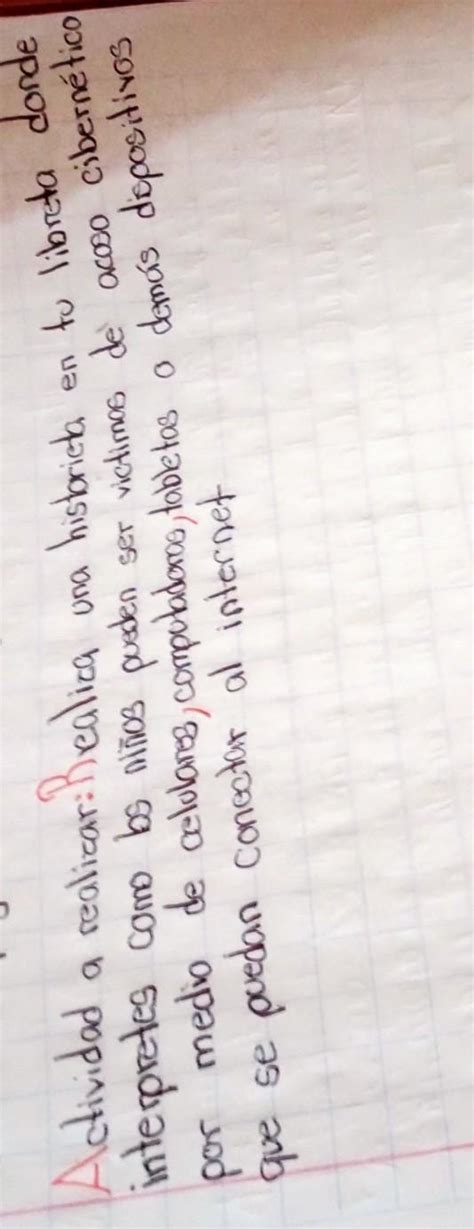 Actividad a realizar: Realiza una historieta en tu libreta donde
interpretes como los niños pueden ser victimas de acoso cibernético
por medio de celulares, computadoras, tabletas o demás dispositivos
que se puedan conectar al internet